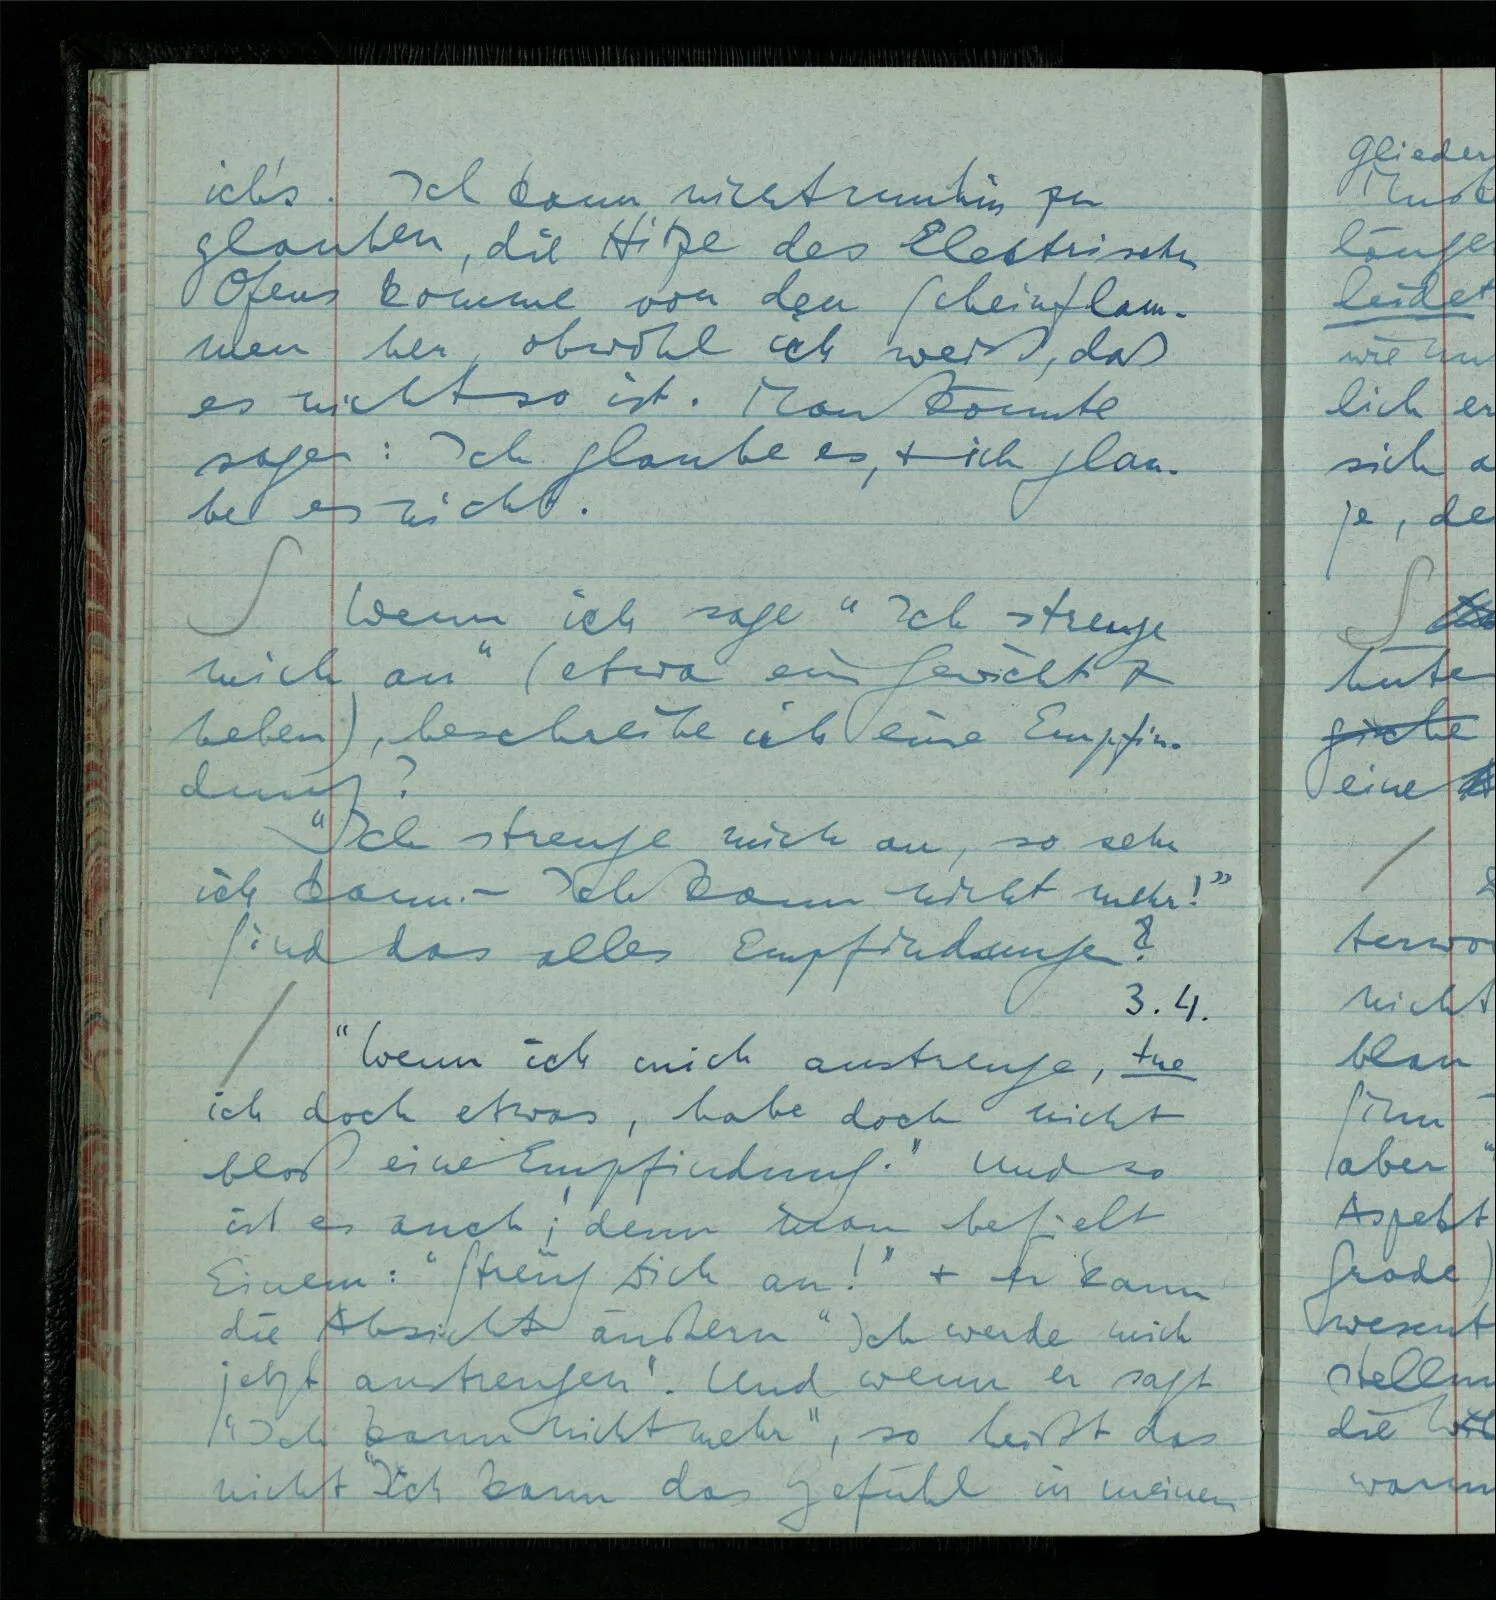 ich's. Ich kann nicht umhin zu
glauben, die Hitze des Elektrischen
Ofens komme von den Scheinflam-
men her, obwohl ich weiß, daß
es nicht so ist. Man könnte
sagen: Ich glaube es, + ich glau-
be es nicht.
∫ Wenn ich sage "Ich strenge
mich an" (etwa ein Gewicht z
heben), beschreibe ich eine Empfin-
dung?
"Ich strenge mich an, so sehr
ich kann. – Ich kann nicht mehr!"
Sind das alles Empfindungen?
3.4.
/ "Wenn ich mich anstrenge, tue
ich doch etwas, habe doch nicht
bloß eine Empfindung." Und so
ist es auch; denn man befielt
Einem: "Streng Dich an!" + er kann
die Absicht äußern "Ich werde mich
jetzt anstrengen". Und wenn er sagt
"Ich kann nicht mehr", so heißt das
nicht "Ich kann das Gefühl in meinen
Glieder
länge
leidet
wie
lich er
sich a
je, de
∫
eine
/
nicht
blau
aber "
Aspekt
Grade)
wesent
stellun
die
warum